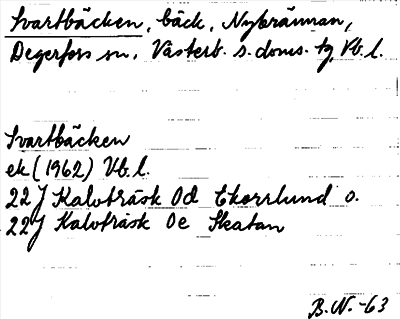 Svartbäcken, bäck, Nybrännan,
Degerfors sn, Västerb. s. doms. tg, Vb. l.
Svartbäcken
ek (1962) Vb. l.
22 J Kalvträsk 0d Ekorrlund o.
22 J Kalvträsk 0e Skatan
B. N. -63